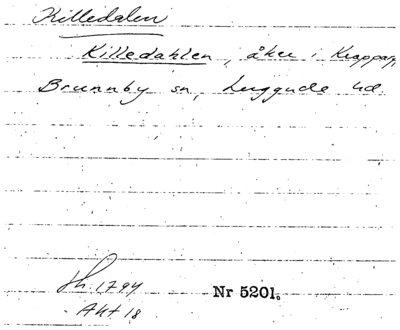 Killedalen
Killedahlen, åker i Krapparp,
Brunnby sn, Luggude hd.
Sk. 1794
Akt 18
Nr 5201.